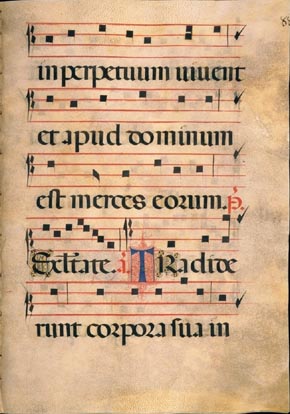 in perpetuum uiuent
et apud dominum
est merces eorum. p̄.
Exltate. i. TRadide
runt corpora sua in